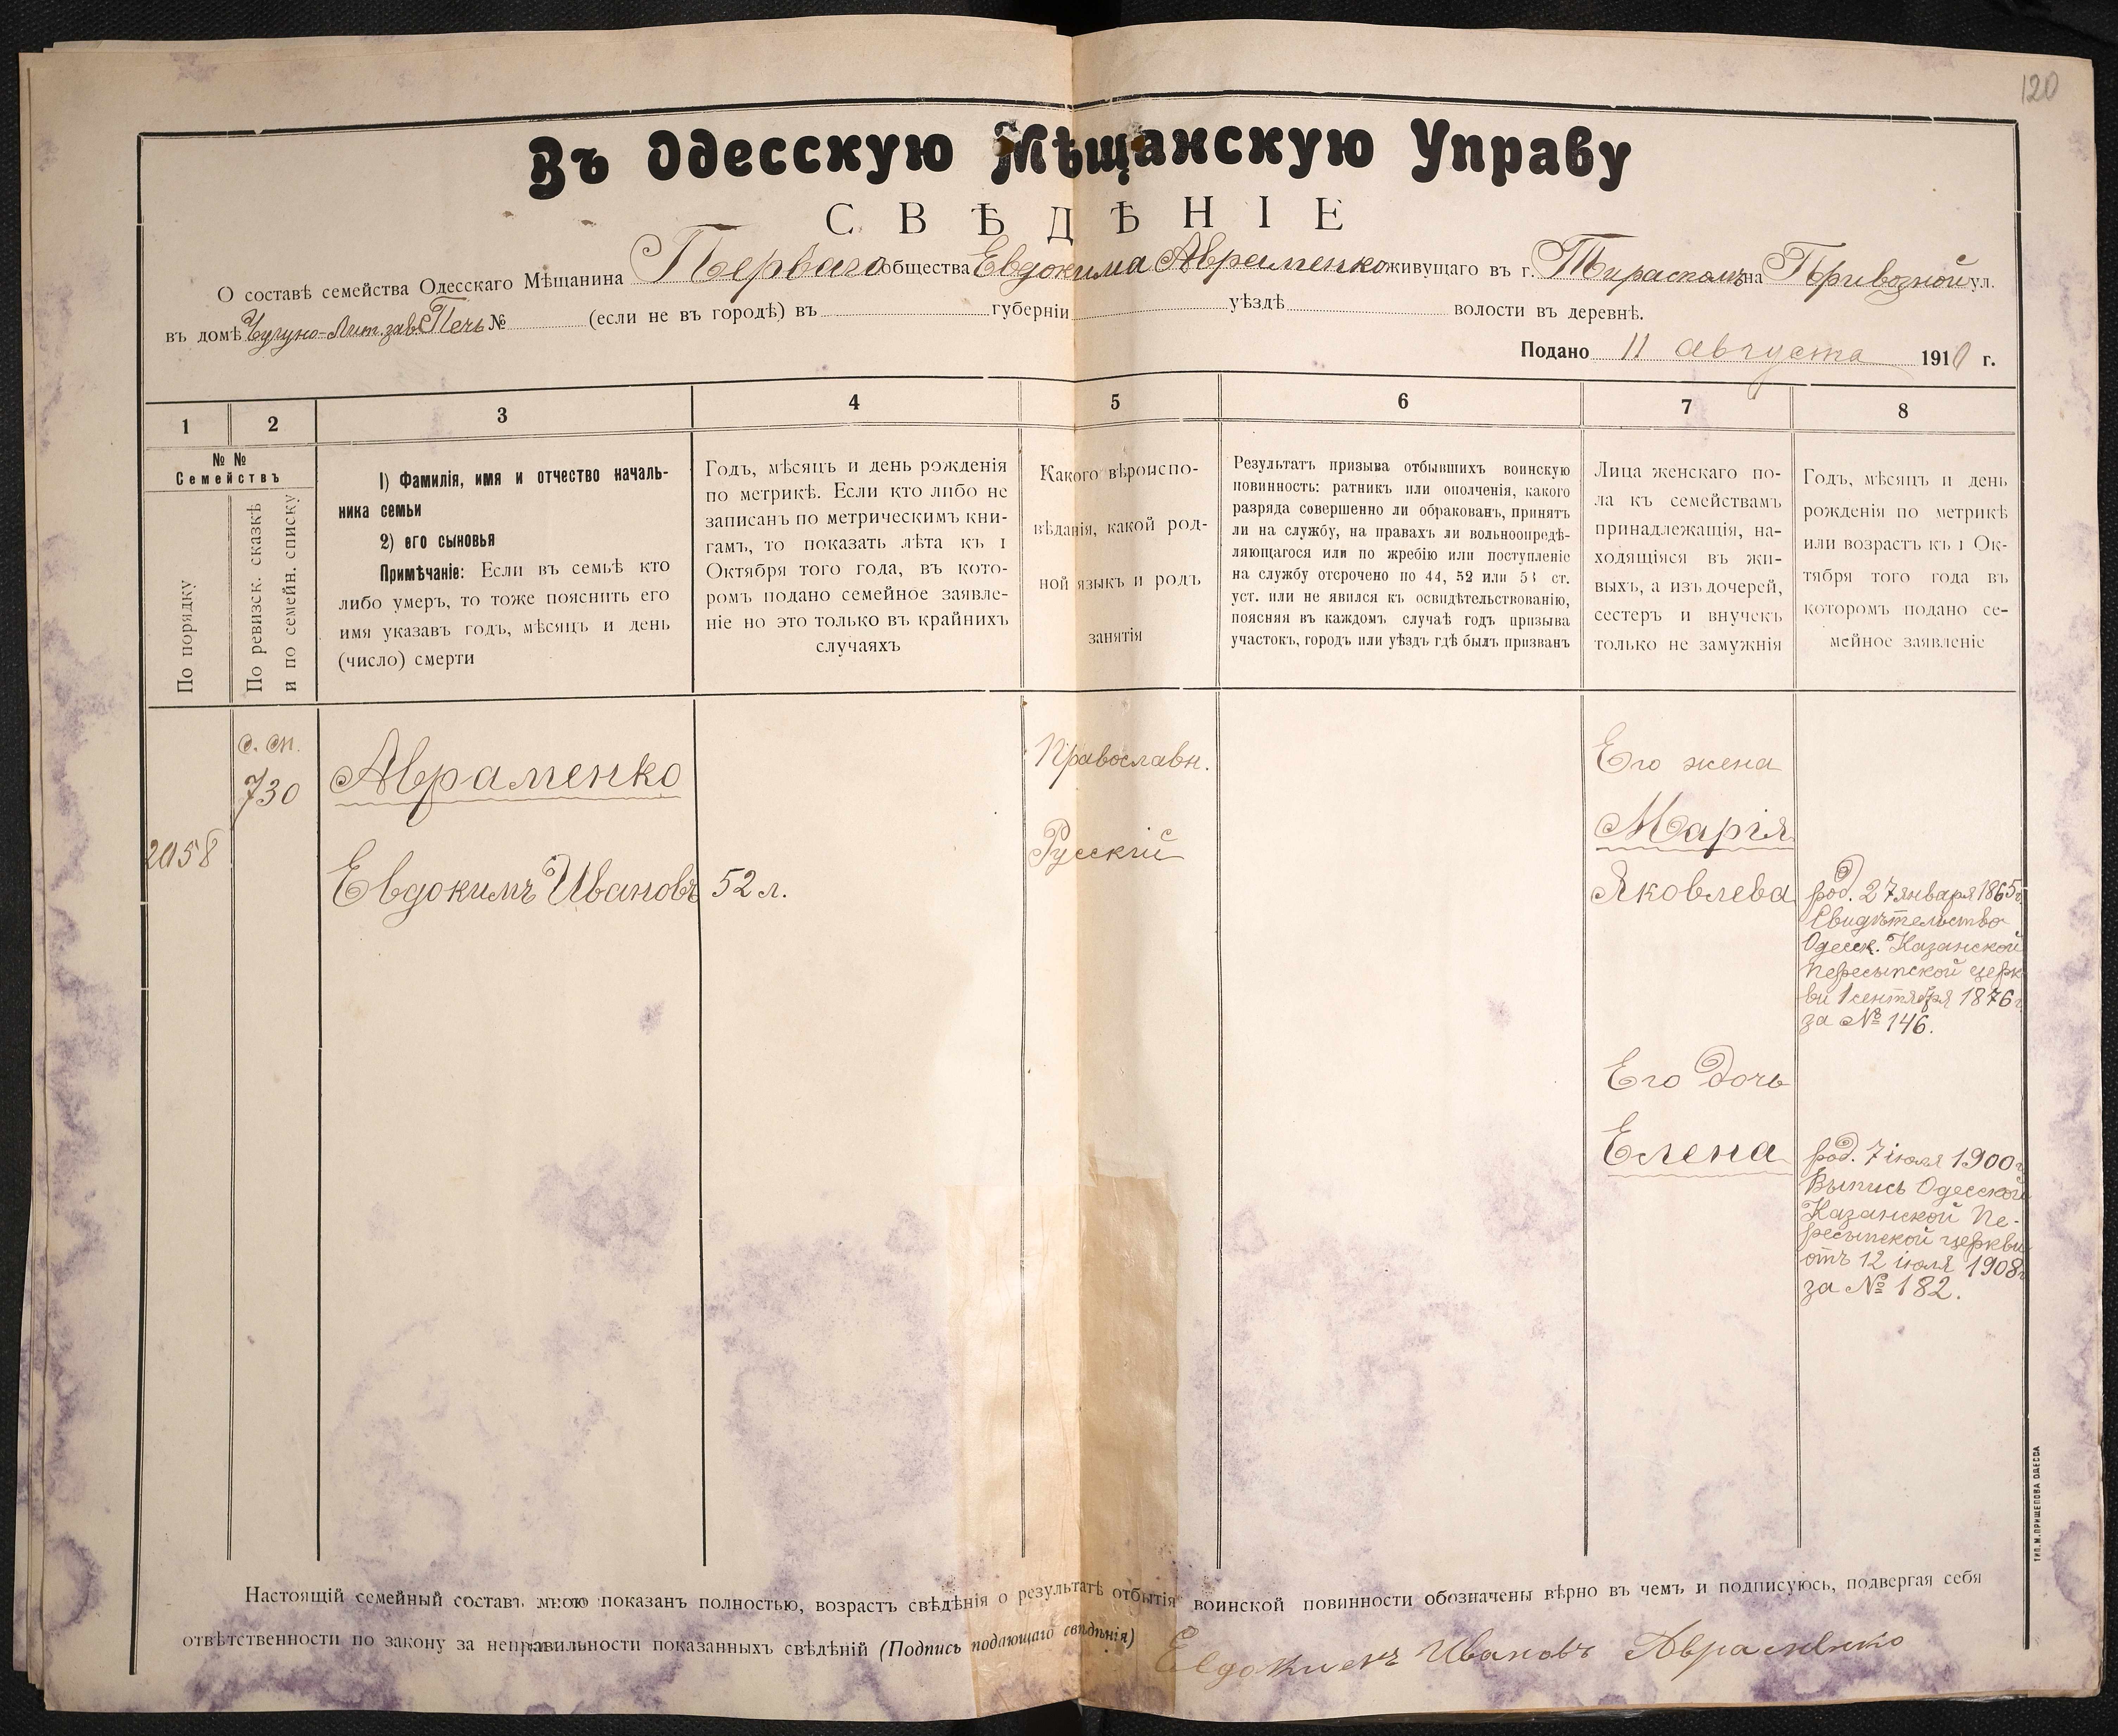 120
Въ Одесскую Мѣщанскую Управу
СВѢДѢНІЕ
О составѣ семейства Одесскаго Мѣщанина Перваго общества Евдокима Авраменко живущаго въ г. Тирасполь на Привозной ул.
въ домѣ Чугуно-Лит. зав. Печь № (если не въ городѣ) въ губерніи уѣздѣ волости въ деревнѣ.
Подано 11 августа 1910 г.
1 2 3 4 5 6 7 8
№ №
Семействъ
По порядку
По ревизск. сказкѣ
и по семейн. списку
1) Фамилія, имя и отчество началь-
ника семьи
2) его сыновья
Примѣчаніе: Если въ семьѣ кто
либо умеръ, то тоже пояснить его
имя указавъ годъ, мѣсяцъ и день
(число) смерти
Годъ, мѣсяцъ и день рожденія
по метрикѣ. Если кто либо не
записанъ по метрическимъ кни-
гамъ, то показать лѣта къ 1
Октября того года, въ кото-
ромъ подано семейное заявле-
ніе но это только въ крайнихъ
случаяхъ
Какого вѣроиспо-
вѣданія, какой род-
ной языкъ и родъ
занятія
Результатъ призыва отбывшихъ воинскую
повинность: ратникъ или ополченія, какого
разряда совершенно ли обракованъ, принятъ
ли на службу, на правахъ ли вольноопредѣ-
ляющагося или по жребію или поступленіе
на службу отсрочено по 44, 52 или 53 ст.
уст. или не явился къ освидѣтельствованію,
поясняя въ каждомъ случаѣ годъ призыва
участокъ, городъ или уѣздъ гдѣ былъ призванъ
Лица женскаго по-
ла къ семействамъ
принадлежащія, на-
ходящіяся въ жи-
выхъ, а изъ дочерей,
сестеръ и внучекъ
только не замужнія
Годъ, мѣсяцъ и день
рожденія по метрикѣ
или возрастъ къ 1 Ок-
тября того года въ
которомъ подано се-
мейное заявленіе
2058
с. сп.
730
Авраменко
Евдокимъ Ивановъ
52 л.
Православн.
Русскій
Его жена
Марія
Яковлева
род. 27 января 1865 г.
Свидѣтельство
Одесск. Казанской
Пересыпской церк-
ви 1 сентября 1876 г.
за № 146.
Его дочь
Елена
род. 7 іюля 1900 г.
Выпись Одесской
Казанской Пе-
ресыпской церкви
отъ 12 іюля 1908 г.
за № 182.
Настоящій семейный составъ мною показанъ полностью, возрастъ свѣдѣнія о результатѣ отбытія воинской повинности обозначены вѣрно въ чемъ и подписуюсь, подвергая себя
отвѣтственности по закону за неправильности показанныхъ свѣдѣній (Подпись подающаго свѣдѣнія) Евдокимъ Ивановъ Авраменко
ТИП. М. ПРИЩЕПОВА ОДЕССА